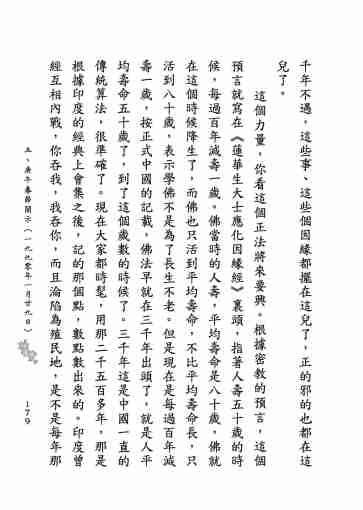 千年不遇，這些事、這些個因緣都擺在這兒了，正的邪的也都在這
兒了。
這個力量，你看這個正法將來要興。根據密教的預言，這個
預言就寫在《蓮華生大士應化因緣經》裏頭，指著人壽五十歲的時
候，每過百年減壽一歲。佛當時的人壽，平均壽命是八十歲，佛就
在這個時候降生了，而佛也只活到平均壽命，不比平均壽命長，只
活到八十歲，表示學佛不是為了長生不老。但是現在是每過百年減
壽一歲，按正式中國的記載，佛法早就在三千年出頭了，就是人平
均壽命五十歲了，到了這個歲數的時候了。三千年這是中國一直的
傳統算法，很準確了。現在大家都時髦，用那二千五百多年，那是
根據印度的經典上會集之後，記的那個點，數點數出來的。印度曾
經互相內戰，你吞我，我吞你，而且淪陷為殖民地，是不是每年那
五、庚午春節開示（一九九零年一月廿九日）
179